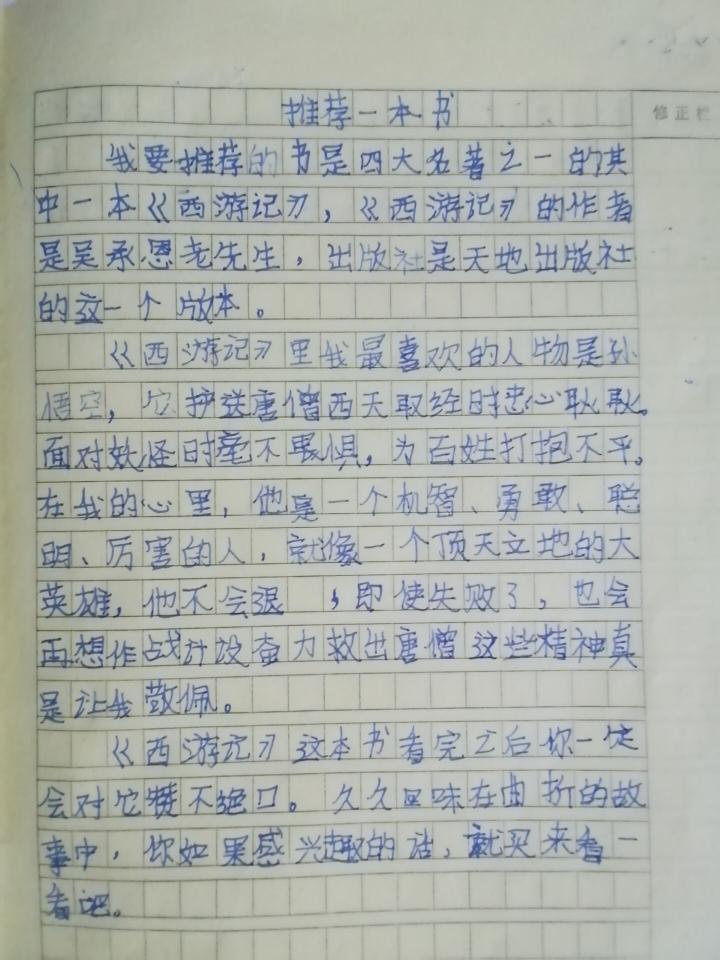 推荐一本书
修正栏
我要推荐的书是四大名著之一的其
中一本《西游记》，《西游记》的作者
是吴承恩老先生，出版社是天地出版社
的这一个版本。
《西游记》里我最喜欢的人物是孙
悟空，它护送唐僧西天取经时忠心耿耿。
面对妖怪时毫不畏惧，为百姓打抱不平。
在我的心里，他是一个机智、勇敢、聪
明、厉害的人，就像一个顶天立地的大
英雄，他不会退，即使失败了，也会
再想作战计设奋力救出唐僧这些精神真
是让我敬佩。
《西游记》这本书看完之后你一定
会对它赞不绝口。久久回味在曲折的故
事中，你如果感兴趣的话，就买来看一
看吧。